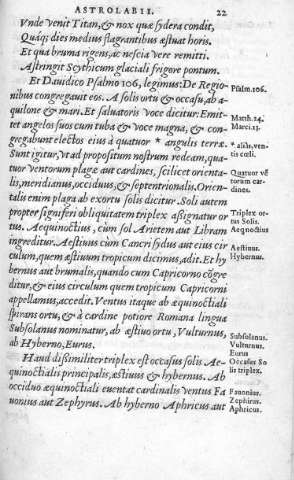 ASTROLABII. 22
Vnde venit Titan, & nox quæ sydera condit,
Quáq; dies medius flagrantibus æstuat horis.
Et qua bruma rigens, ac nescia vere remitti.
Astringit Scythicum glaciali frigore pontum.
Et Dauidico Psalmo 106, legimus: De Regio-
Psalm.106.
nibus congregauit eos. A solis ortu & occasu, ab a-
quilone & mari. Et saluatoris voce dicitur: Emit-
Matth.24.
tet angelos suos cum tuba & voce magna, & con-
Marci.13.
gregabunt electos eius à quatuor * angulis terræ.
* alias, ven-
tis cœli.
Sunt igitur, vt ad propositum nostrum redeam, qua-
tuor ventorum plagæ aut cardines, scilicet orienta-
Quatuor vē
lis, meridianus, occiduus, & septentrionalis. Orien-
torum car-
dines.
talis enim plaga ab exortu solis dicitur. Soli autem
propter signiferi obliquitatem triplex assignatur or-
Triplex or-
tus. Aequinoctius, cum sol Arietem aut Libram
tus Solis.
Aequoctius
ingreditur. Aestiuus cùm Cancri sydus aut eius cir
Aestiuus.
culum, quem æstiuum tropicum dicimus, adit. Et hy
Hybernus.
bernus aut brumalis, quando cum Capricorno cōgre
ditur, & eius circulum quem tropicum Capricorni
appellamus, accedit. Ventus itaque ab æquinoctiali
spirans ortu, & à cardine potiore Romana lingua
Subsolanus nominatur, ab æstiuo ortu, Vulturnus,
Subsolanus.
ab Hyberno, Eurus.
Vulturnus.
Eurus
Haud dissimiliter triplex est occasus solis. Ae-
Occasus So
quinoctialis principalis, æstiuus & hybernus. Ab
lis triplex.
occiduo æquinoctiali euentat cardinalis ventus Fa
Fauonius.
uonius aut Zephyrus. Ab hyberno Aphricus aut
Zephirus.
Aphricus.